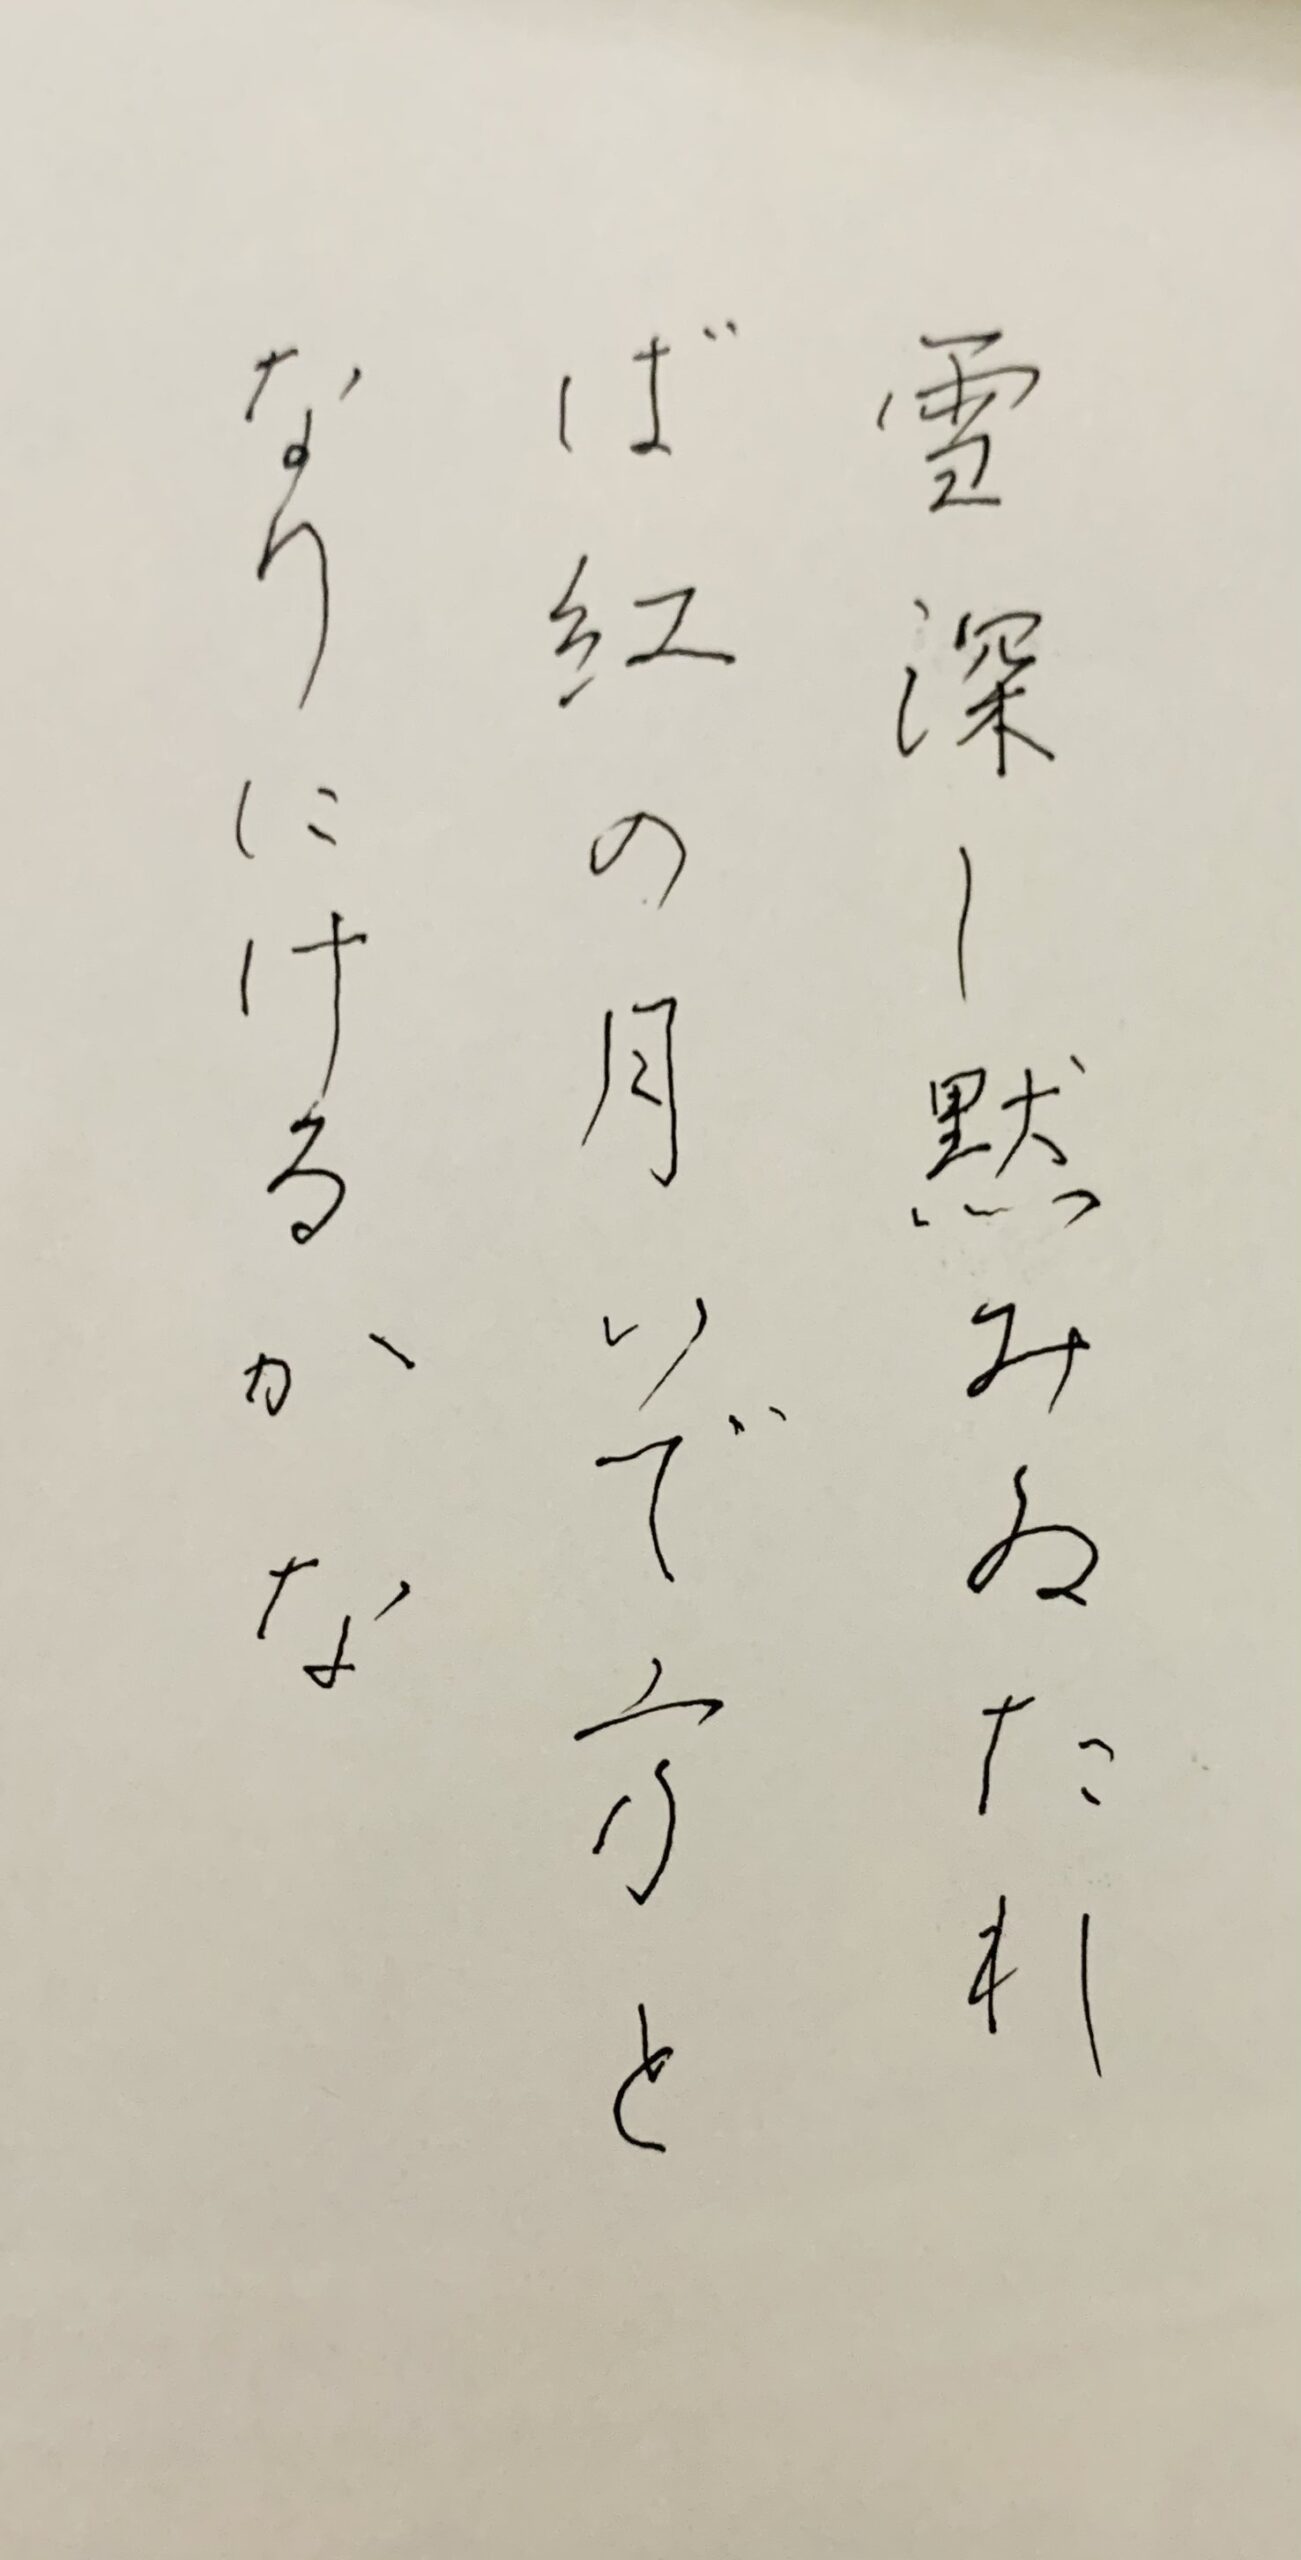 雪深し黙みゐたれ
ば紅の月いで方と
なりにけるかな